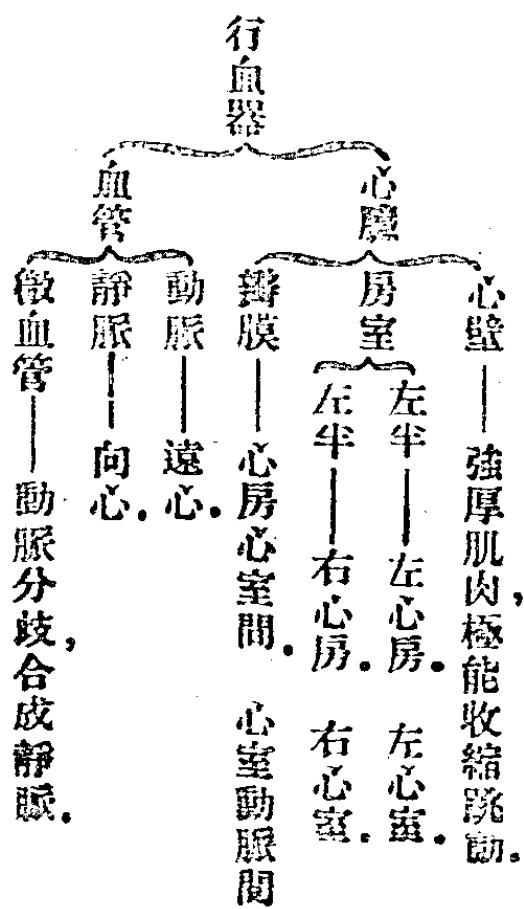 行血器
心臟
心壁——強厚肌肉,極能收縮跳動.
房室
左半——左心房. 左心室.
左半——右心房. 右心室.
瓣膜——心房心室間. 心室動脈間
血管
動脈——遠心.
靜脈——向心.
微血管——動脈分歧,合成靜脈.